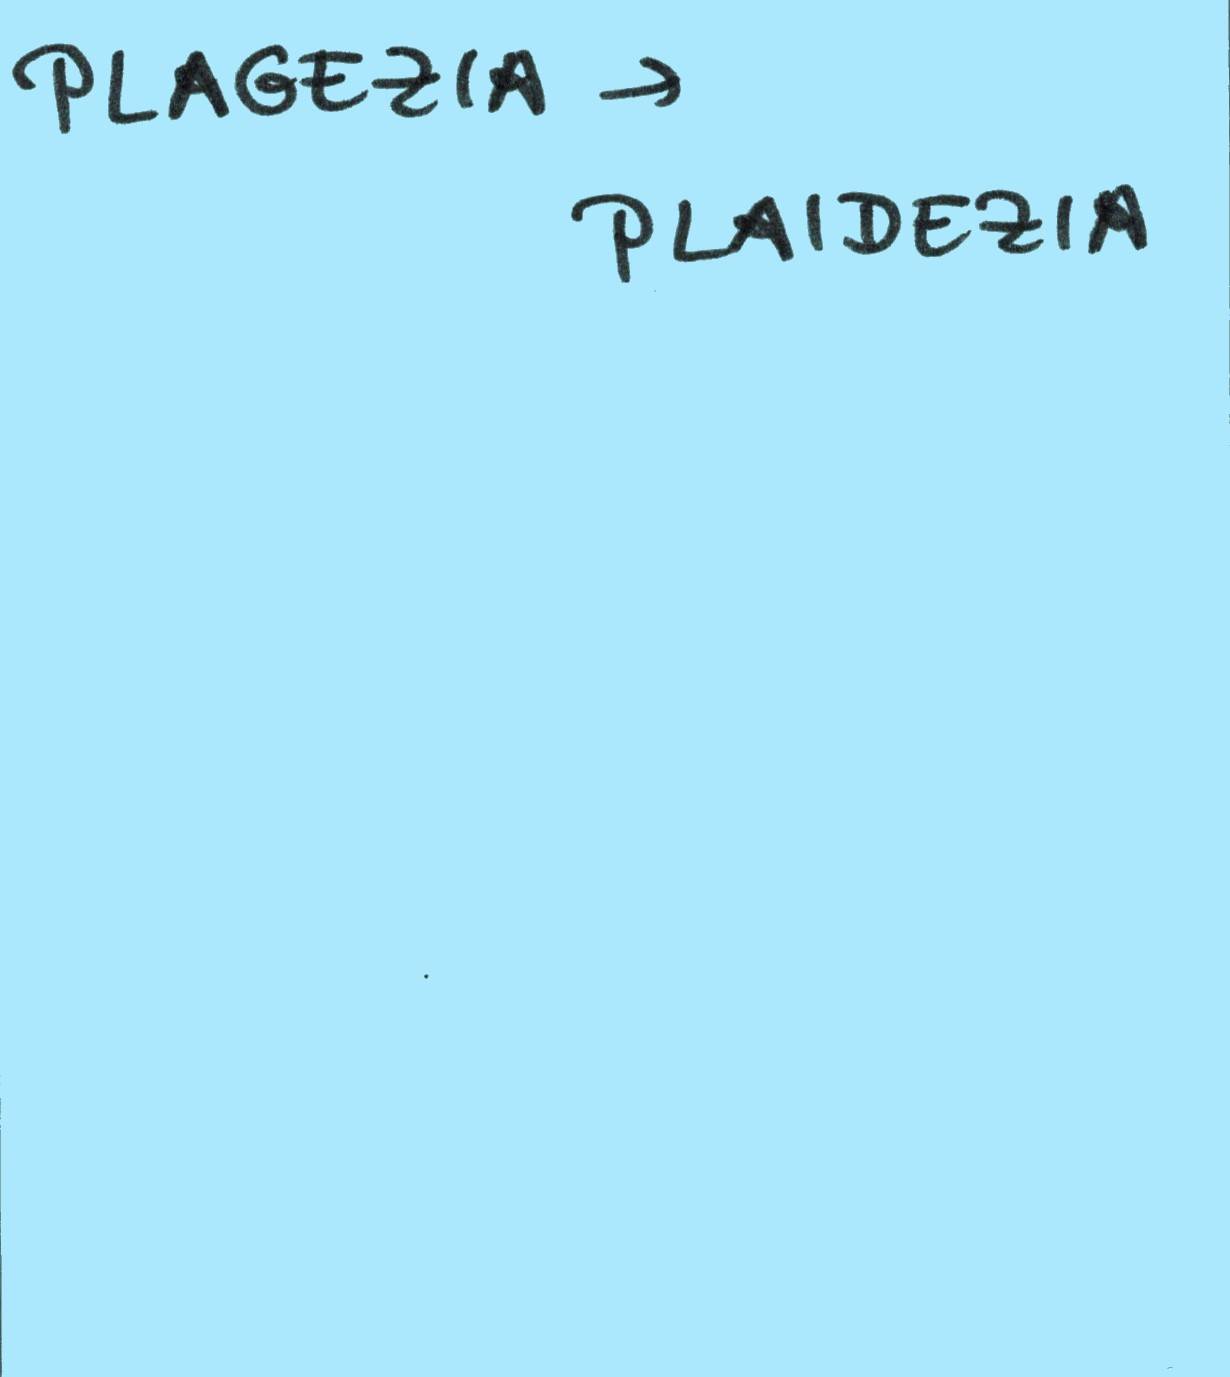 PLAGEZIA →
PLAIDEZIA